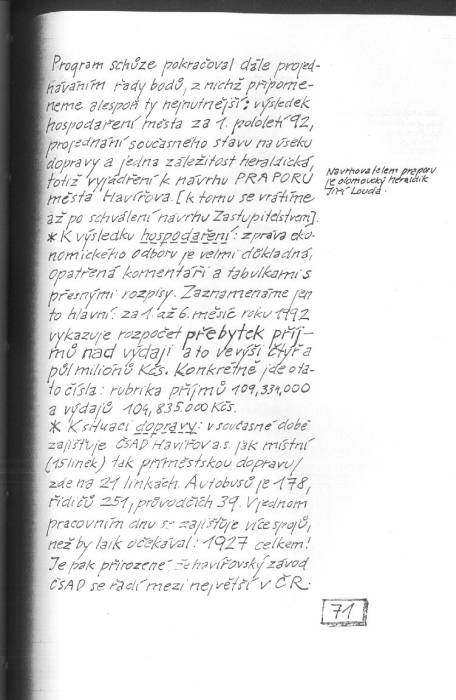 Program schůze pokračoval dále projed-
náváním řady bodů, z nichž připome-
neme alespoň ty nejnutnější: výsledek
hospodaření města za 1. pololetí 92,
projednání současného stavu na úseku
dopravy a jedna záležitost heraldická,
totiž vyjádření k návrhu PRAPORU
města Havířova. [k tomu se vrátíme
až po schválení návrhu Zastupitelstvem].
Navrhovatelem praporu
je olomoucký heraldik
Jiří Louda.
* K výsledku hospodaření: zpráva eko-
nomického odboru je velmi důkladná,
opatřená komentáři a tabulkami s
přesnými rozpisy. Zaznamenáme jen
to hlavní: za 1. až 6. měsíc roku 1992
vykazuje rozpočet přebytek příj-
mů nad výdaji a to ve výši čtyř a
půl miliónů Kčs. Konkrétně jde o ta-
to čísla: rubrika příjmů 109,334.000
a výdajů 104,835.000 Kčs.
* K situaci dopravy: v současné době
zajišťuje ČSAD Havířov a.s. jak místní
(15 linek) tak příměstskou dopravu/
zde na 21 linkách. Autobusů je 178,
řidičů 251, průvodčích 39. V jednom
pracovním dnu se zajišťuje více spojů,
než by laik očekával: 1927 celkem!
Je pak přirozené že havířovský závod
ČSAD se řadí mezi největší v ČR.
71